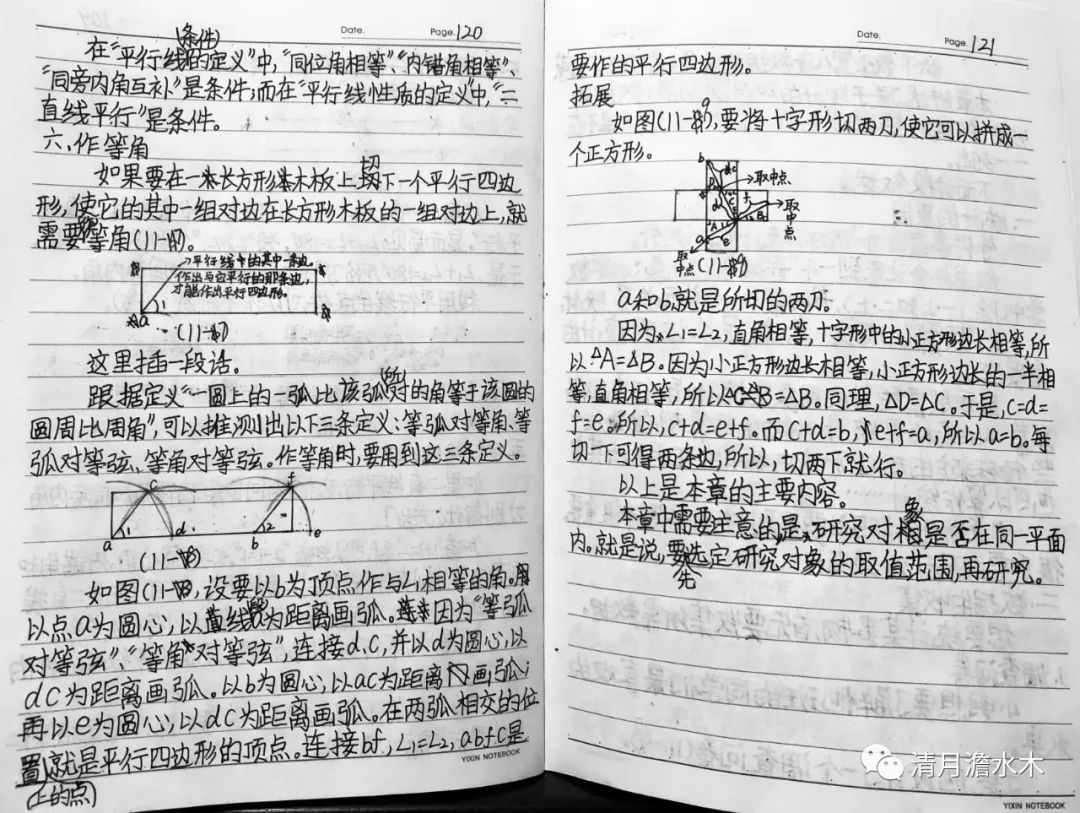 Date.
Page. 120
(条件)
在“平行线的定义”中,“同位角相等”、“内错角相等”、
“同旁内角互补”是条件;而在“平行线性质的定义”中,“二
直线平行”是条件。
六、作等角
切
如果要在一长方形木板上切下一个平行四边
形,使它的其中一组对边在长方形木板的一组对边上,就
需要等角(11-17)。
平行线中的其中一条边,
作出与它平行的那条边,
才能作出平行四边形。
1
a
(11-17)
这里插一段话。
(所)
跟据定义“一圆上的一弧比该弧对的角等于该圆的
圆周比周角”,可以推测出以下三条定义:等弧对等角、等
弧对等弦、等角对等弦。作等角时,要用到这三条定义。
c
f
a
1
d
b
2
e
(11-18)
如图(11-18),设要以b为顶点作与∠1相等的角。
以点a为圆心,以为距离画弧。因为“等弧
对等弦”、“等角对等弦”,连接d、c,并以d为圆心,以
dc为距离画弧。以b为圆心,以ac为距离画弧;
再以e为圆心,以dc为距离画弧。在两弧相交的位
置就是平行四边形的顶点。连接bf,∠1=∠2,abfc是
(上的点)
YIXIN NOTEBOOK
Date.
Page. 121
要作的平行四边形。
拓展
如图(11-19),要将十字形切两刀,使它可以拼成一
个正方形。
b
取中点
取中点
取中点
a
(11-19)
a和b就是所切的两刀。
因为∠1=∠2,直角相等,十字形中的小正方形边长相等,所
以△A=△B。因为小正方形边长相等,小正方形边长的一半相
等,直角相等,所以△C=△B。同理,△D=△C。于是,c=d=
f=e。所以,c+d=e+f。而c+d=b,e+f=a,所以a=b。每
切一下可得两条边,所以,切两下就行。
以上是本章的主要内容。
象
本章中需要注意的是,研究对是否在同一平面
内。就是说,要选定研究对象的取值范围,再研究。
先
清月澹水木
YIXIN NOTEBOOK